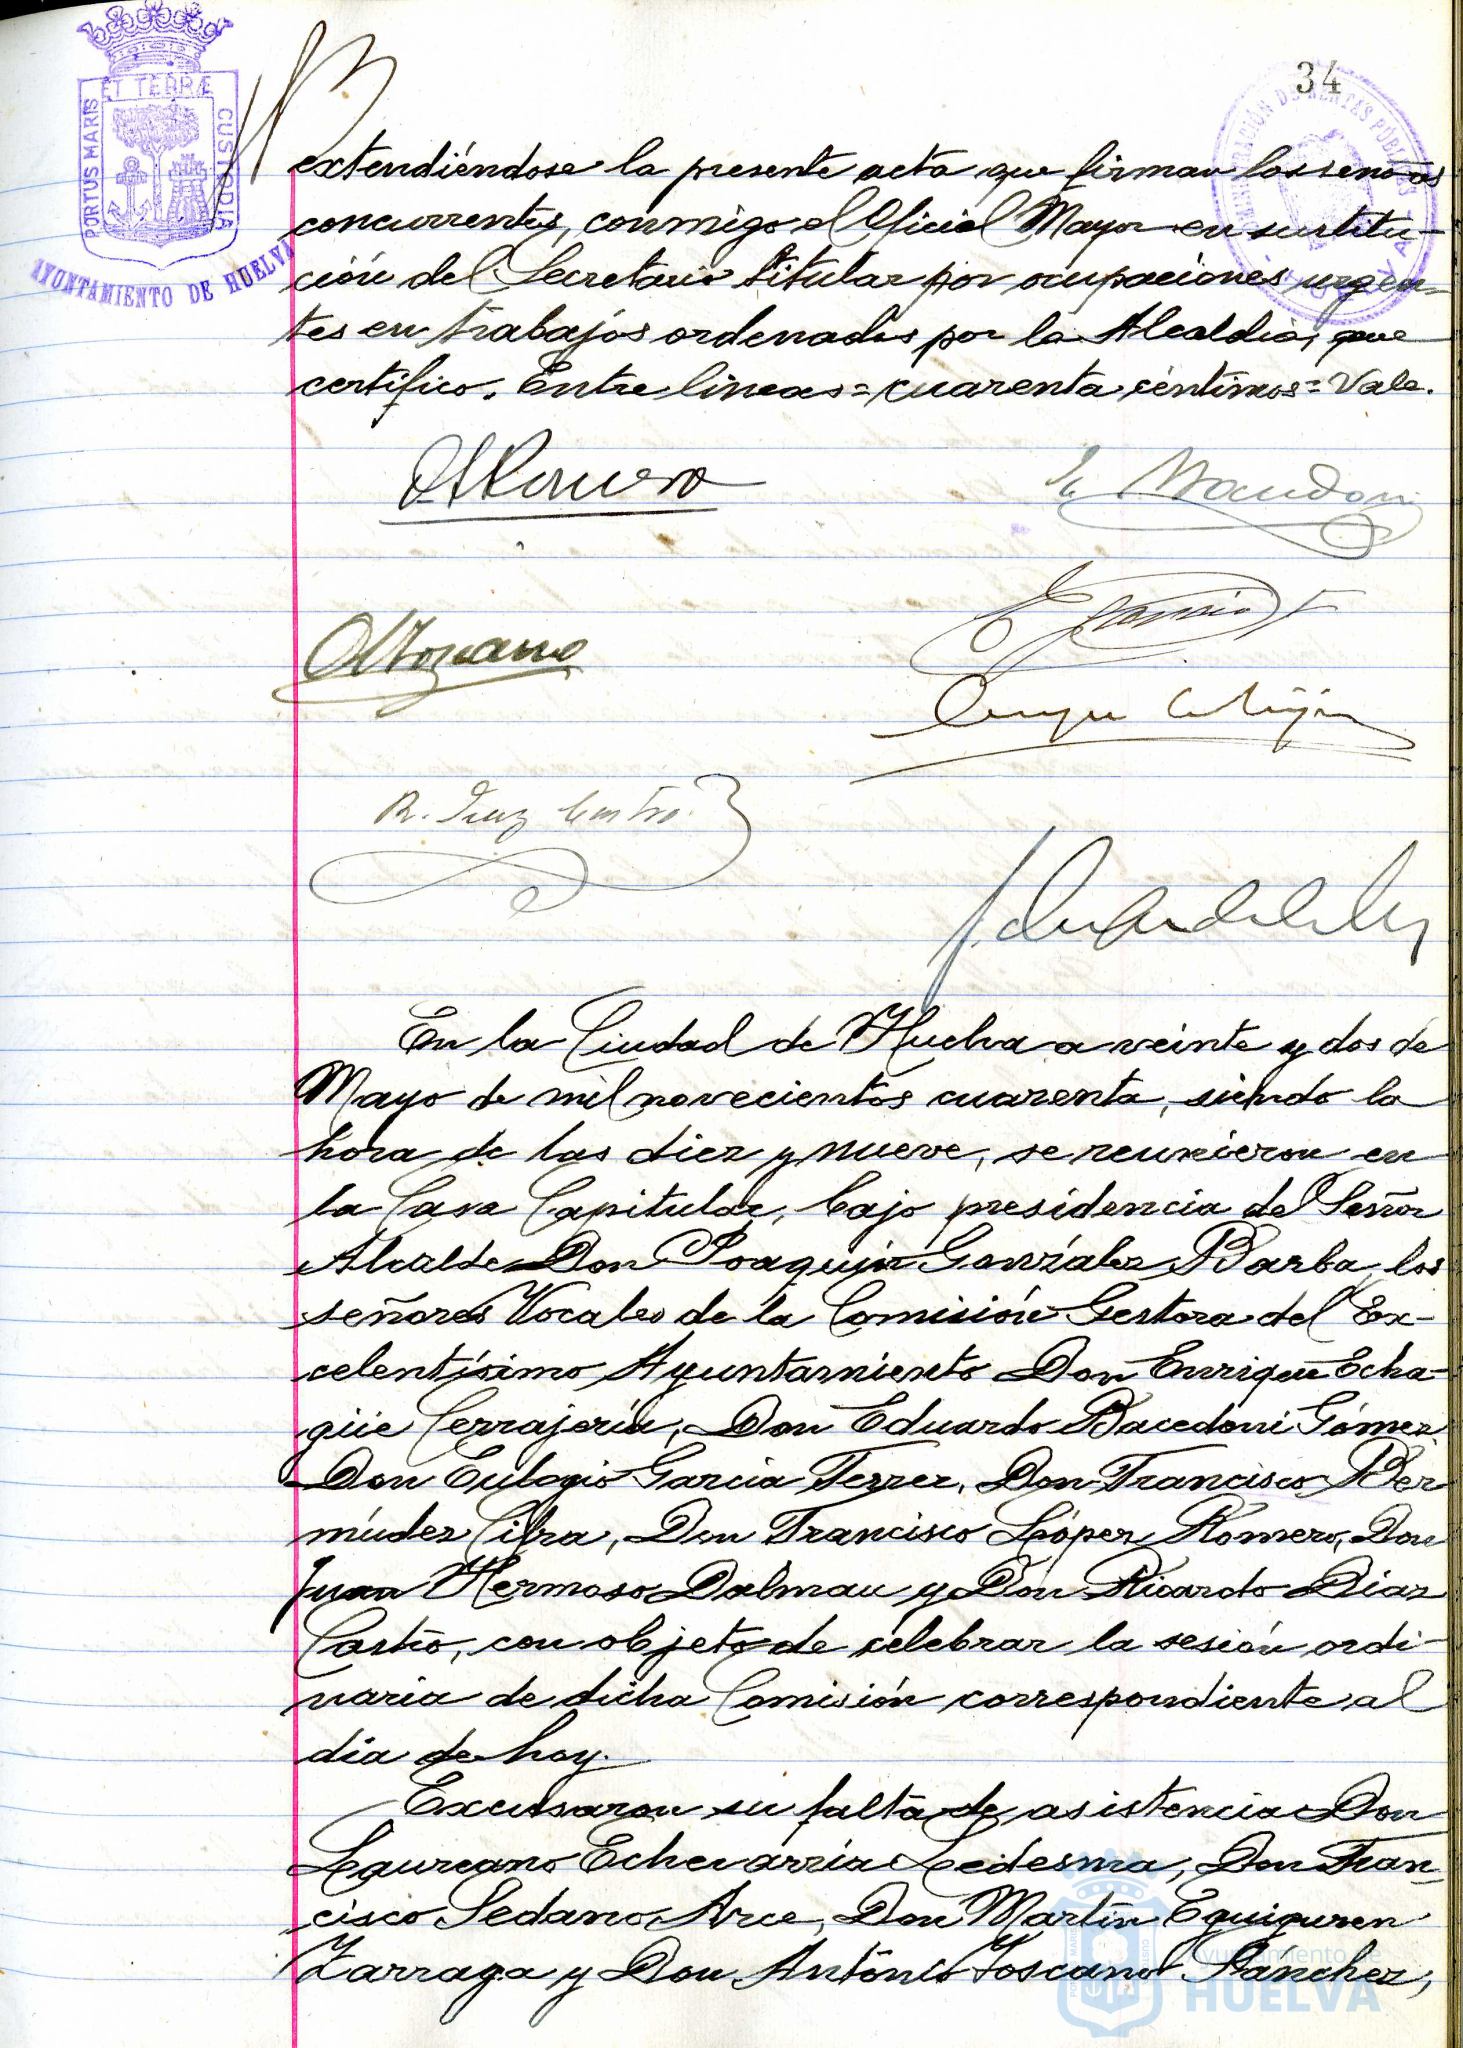 34
ET TERRÆ
PORTUS MARIS
CUSTODIA
AYUNTAMIENTO DE HUELVA
extendiéndose la presente acta que firman los señores
concurrentes, conmigo el Oficial Mayor en sustitu-
ción del Secretario titular por ocupaciones urgen-
tes en trabajos ordenados por la Alcaldia, que
certifico. Entre lineas = cuarenta céntimos = Vale.
R. Diaz Castro
En la Ciudad de Huelva a veinte y dos de
Mayo de mil novecientos cuarenta, siendo la
hora de las diez y nueve, se reunieron en
la Casa Capitular, bajo presidencia del Señor
Alcalde Don Joaquin González Barba, los
señores Vocales de la Comisión Gestora del Ex-
celentísimo Ayuntamiento Don Enrique Echa-
güe Cerrajería, Don Eduardo Bacedoni Gómez,
Don Eulogio García Ferrer, Don Francisco Ber
múdez Cilra, Don Francisco López Romero, Don
Juan Hermoso Dalmau y Don Ricardo Diaz
Castro, con objeto de celebrar la sesión ordi-
naria de dicha Comisión correspondiente al
dia de hoy.
Excusaron su falta de asistencia Don
Laureano Echevarría Ledesma, Don Fran-
cisco Sedano Arce, Don Martín Eguiguren
Zarraga y Don António Toscano Sánchez,
Ayuntamiento de
HUELVA